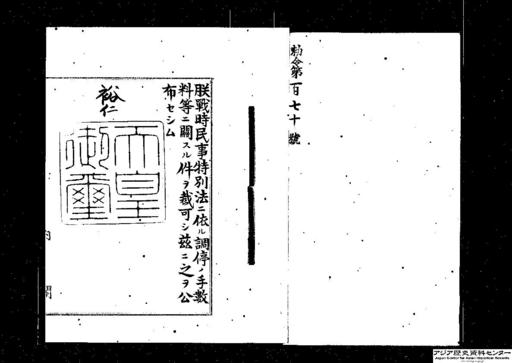 勅令第百七十號
朕戰時民事特別法ニ依ル調停ノ手數
料等ニ關スル件ヲ裁可シ茲ニ之ヲ公
布セシム
裕仁
天皇
御璽
内閣
アジア歴史資料センター
Japan Center for Asian Historical Records